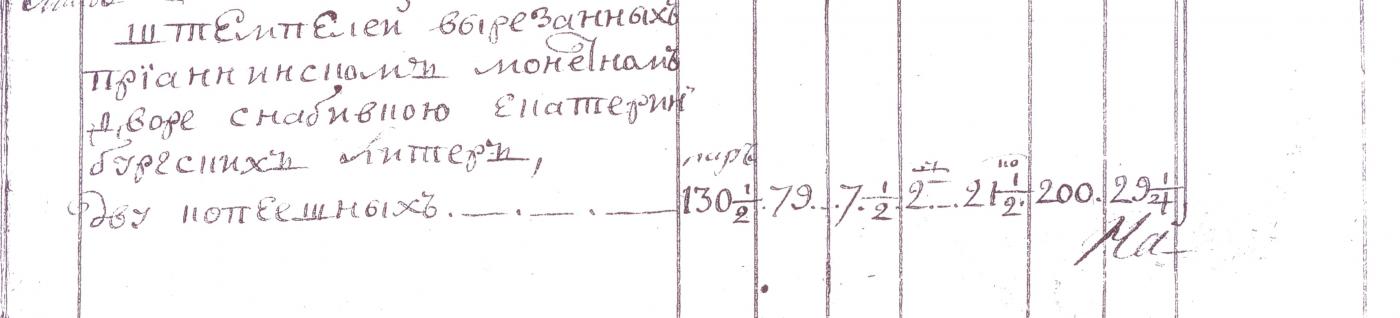 штемпелей вырезанныхъ
пріаннинскомъ монетномъ
дворе снабивкою екатерин
бургскихъ литеръ,
паръ
двукопеешныхъ. — . — . — 130 1/2. 79. 7. 1/2 2. 21 1/2. 200. 29 1/4